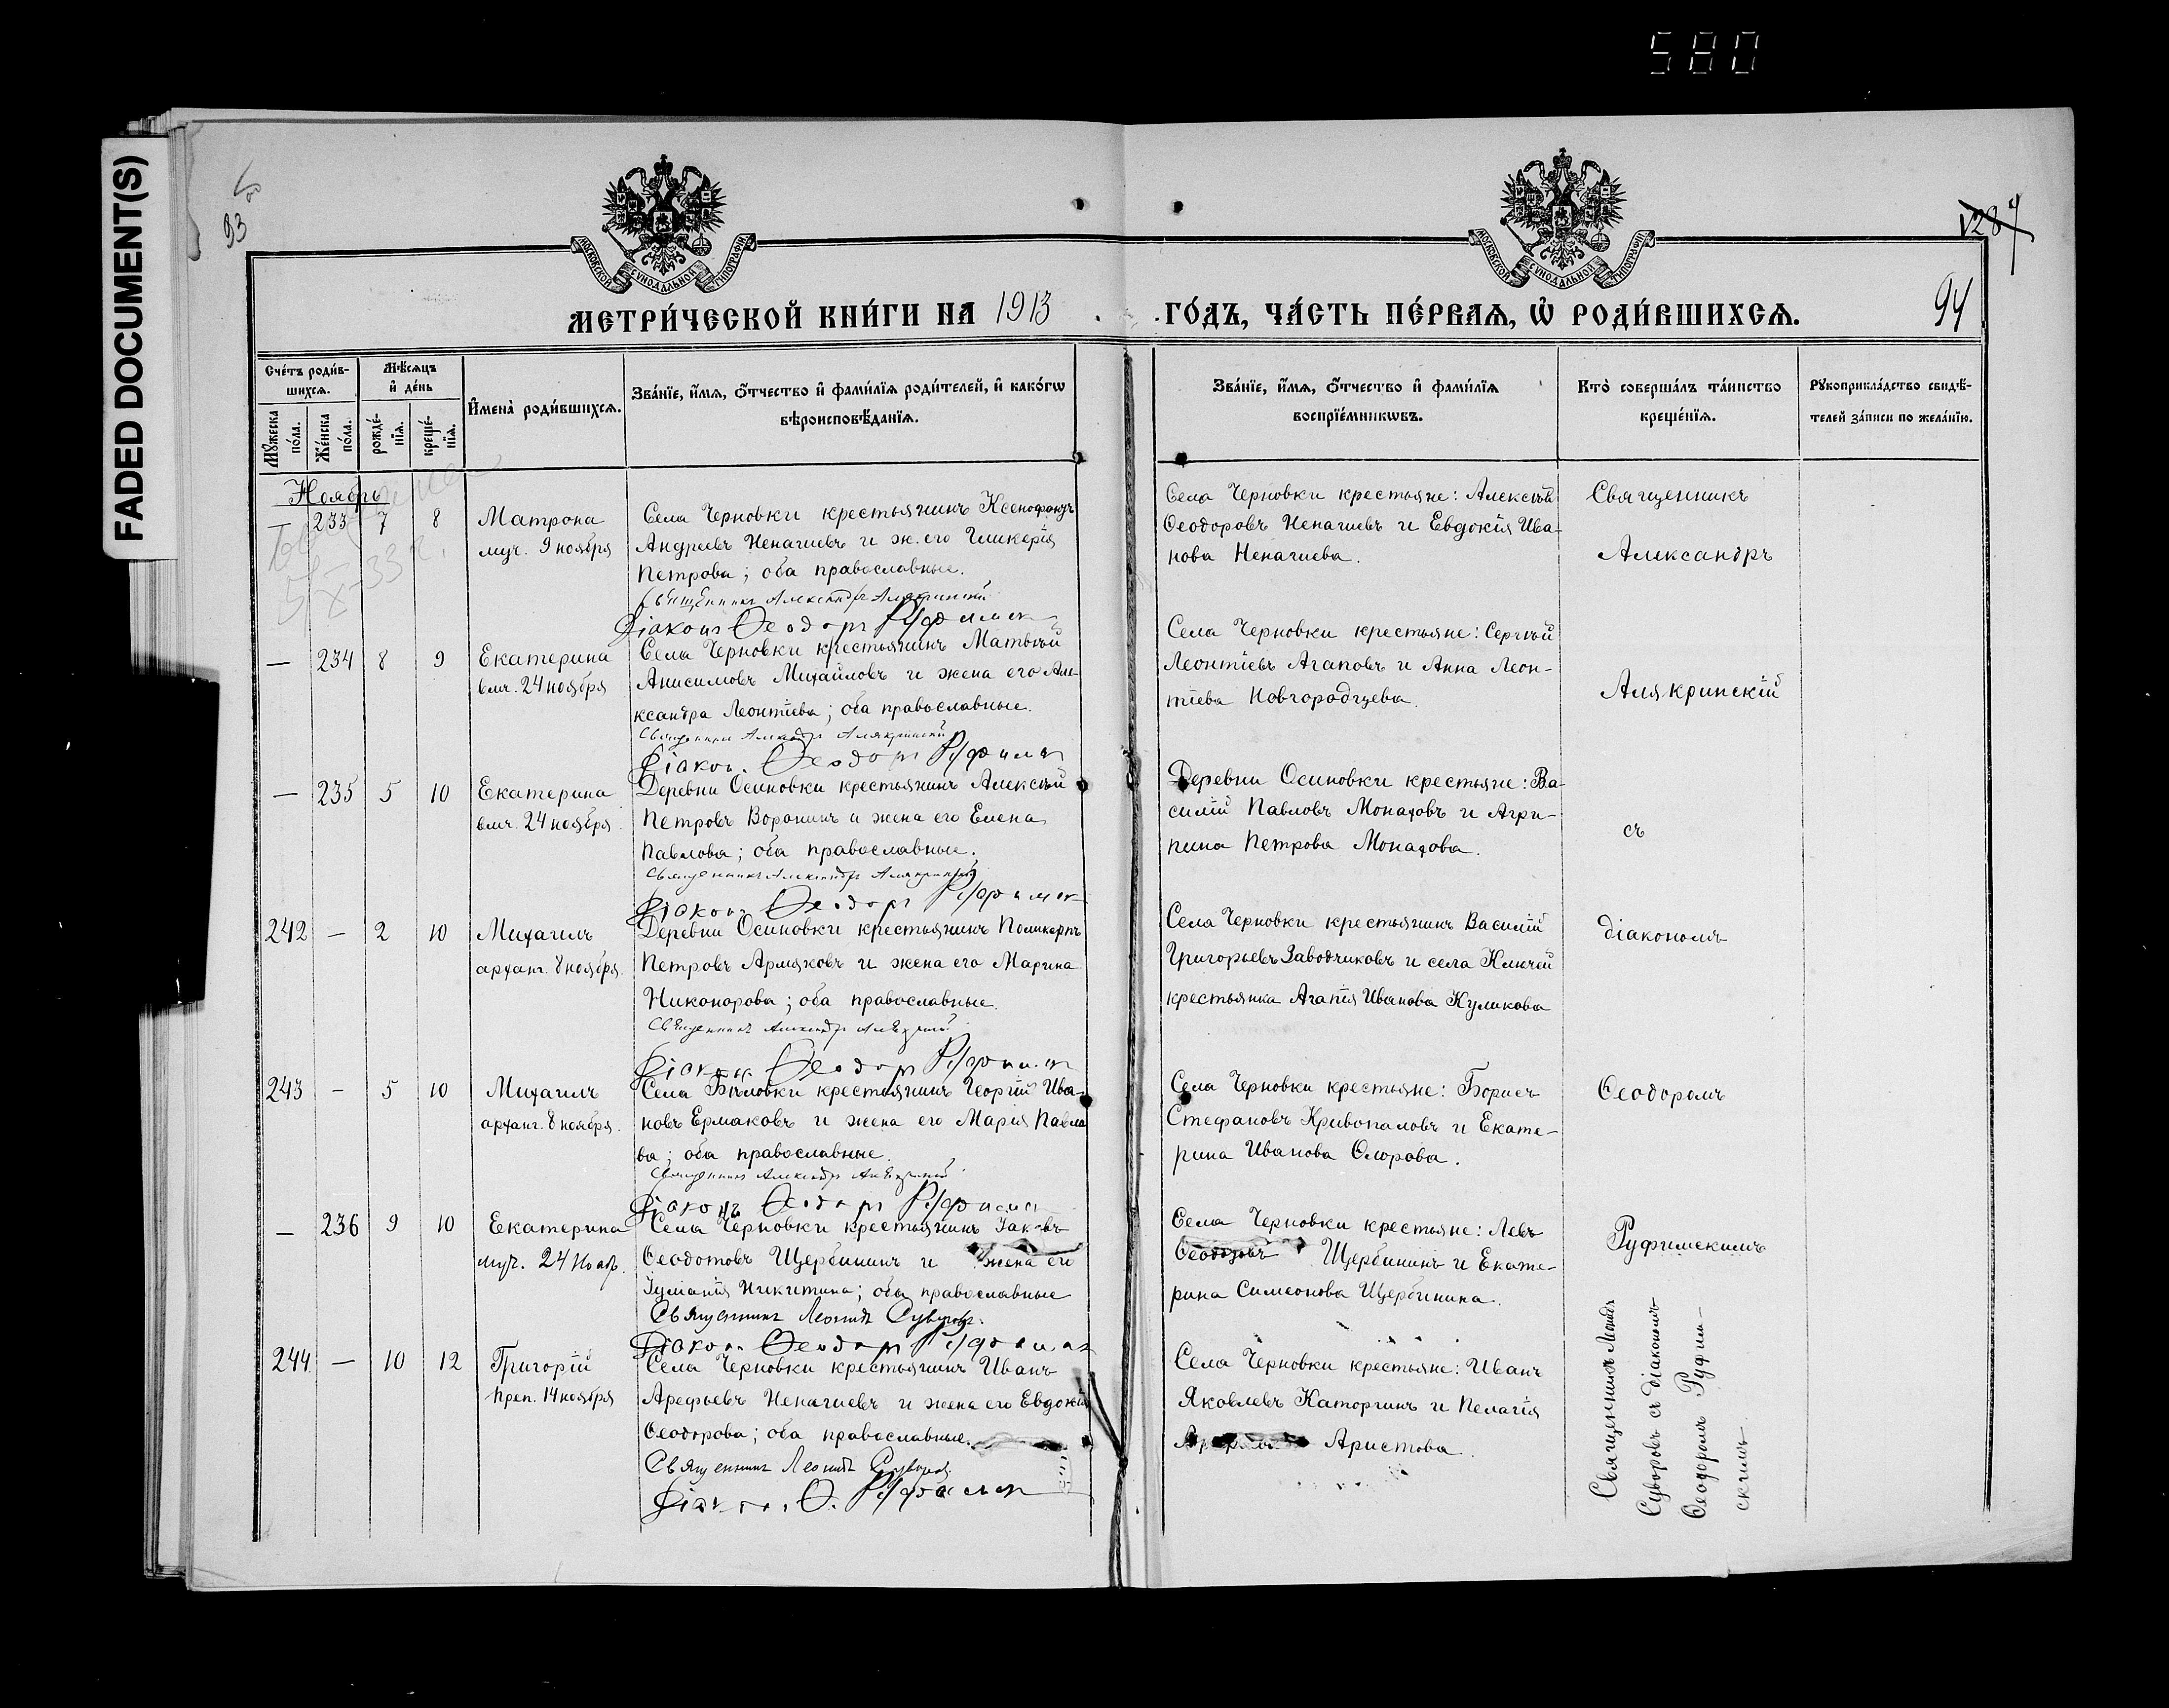 580
FADED DOCUMENT(S)
93
94
МОСКОВСКОЙ СѴНОДАЛЬНОЙ ТИПОГРАФІИ
МОСКОВСКОЙ СѴНОДАЛЬНОЙ ТИПОГРАФІИ
МЕТРИ́ЧЕСКОЙ КНИ́ГИ НА 1913 ГО́ДЪ, ЧА́СТЬ ПЕ́РВАѦ, Ѡ҆ РОДИ́ВШИХСѦ.
Сче́тъ роди́в-
шихсѧ.
Мꙋ́жеска
по́ла.
Же́нска
по́ла.
Мѣ́сѧцъ
и҆ де́нь
рожде́-
нїѧ.
креще́-
нїѧ.
И҆мена̀ роди́вшихсѧ.
Зва́нїе, и҆́мѧ, ѻ҆́тчество и҆ фами́лїѧ роди́телей, и҆ како́гѡ
вѣроисповѣ́данїѧ.
Зва́нїе, и҆́мѧ, ѻ҆́тчество и҆ фами́лїѧ
воспрїе́мникѡвъ.
Кто̀ соверша́лъ та́инство
креще́нїѧ.
Рꙋкоприкла́дство свидѣ́-
телей за́писи по жела́нїю.
Ноябрь
233 7 8 Матрона
муч. 9 ноября
Села Черновки крестьянинъ Ксенофонтъ
Андреевъ Ненашевъ и ж. его Гликерія
Петрова; оба православные.
Священникъ Александръ Алякринскій
Діаконъ Ѳеодоръ Руфимск
Села Черновки крестьяне: Алексѣй
Ѳеодоровъ Ненашевъ и Евдокія Ива-
нова Ненашева.
— 234 8 9 Екатерина
вмч. 24 ноября
Села Черновки крестьянинъ Матвѣй
Анисимовъ Михайловъ и жена его Але-
ксандра Леонтіева; оба православные.
Священникъ Александръ Алякринскій
Діакон. Ѳеодоръ Руфимск
Села Черновки крестьяне: Сергѣй
Леонтіевъ Агаповъ и Анна Леон-
тіева Новгородцева.
— 235 5 10 Екатерина
вмч. 24 ноября.
Деревни Осиновки крестьянинъ Алексѣй
Петровъ Воронинъ и жена его Елена
Павлова; оба православные.
Священникъ Александръ Алякринскій
Діаконъ Ѳеодоръ Руфимск
Деревни Осиновки крестьяне: Ва-
силій Павловъ Монаховъ и Агри-
пина Петрова Монахова.
242 — 2 10 Михаилъ
арханг. 8 ноября.
Деревни Осиновки крестьянинъ Поликарпъ
Петровъ Армяковъ и жена его Марина
Никонорова; оба православные.
Священникъ Александръ
Діаконъ Ѳеодоръ Руфимск
Села Черновки крестьянинъ Василій
Григорьевъ Заводчиковъ и села Ключей
крестьянка Агапія Иванова Куликова
243 — 5 10 Михаилъ
арханг. 8 ноября.
Села Бѣловки крестьянинъ Георгій Ива-
новъ Ермаковъ и жена его Марія Павло
ва; оба православные.
Священникъ Александръ
Діаконъ Ѳеодоръ Руфимск
Села Черновки крестьяне: Борисъ
Стефановъ Кривопаловъ и Екате-
рина Иванова
— 236 9 10 Екатерина
муч. 24 Нояб.
Села Черновки крестьянинъ Іаковъ
Ѳеодотовъ Щербининъ и жена его
Никитина; оба православные
Священникъ Леонидъ Суворовъ.
Діакон. Ѳеодоръ Руфимск
Села Черновки крестьяне: Левъ
Щербининъ и Екате-
рина Симеонова Щербинина.
244 — 10 12 Григорій
преп. 14 ноября
Села Черновки крестьянинъ Иванъ
Арефьевъ Ненашевъ и жена его Евдокія
Ѳеодорова; оба православные.
Священникъ Леонидъ Суворовъ
Діаконъ Ѳ. Руфимск
Села Черновки крестьяне: Иванъ
Яковлевъ Каторгинъ и Пелагія
Аристова.
Священникъ
Александръ
Алякринскій
съ
діакономъ
Ѳеодоромъ
Руфимскимъ
Священникъ Леонидъ
Суворовъ съ діакономъ
Ѳеодоромъ Руфим-
скимъ.